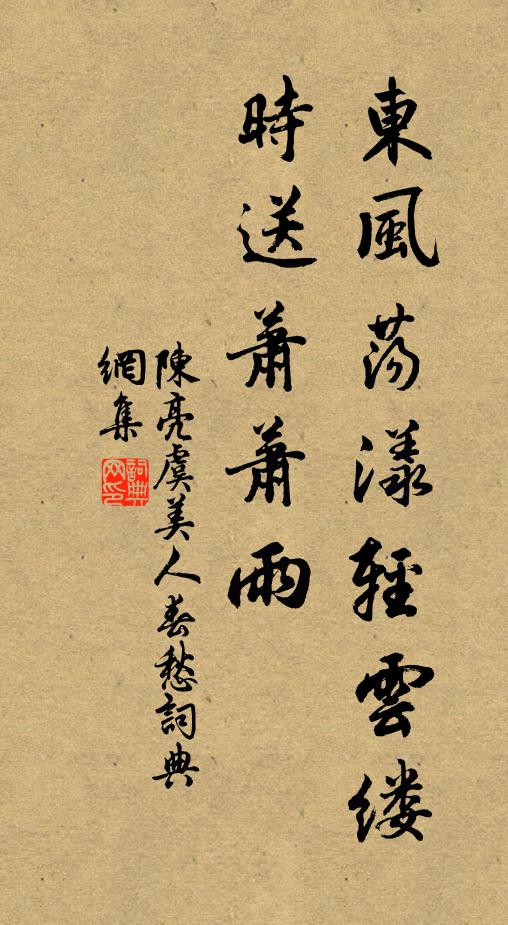 東風蕩漾輕雲缕
時送蕭蕭雨
陳亮虞美人春愁詞典
網集
詞典
网印